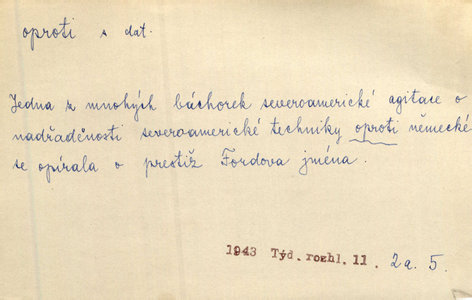 oproti s dat.
Jedna z mnohých báchorek severoamerické agitace o
nadřaděnosti severoamerické techniky oproti německé
se opírala o prestiž Fordova jména.
1943 Týd. rozhl. 11. 2a. 5.